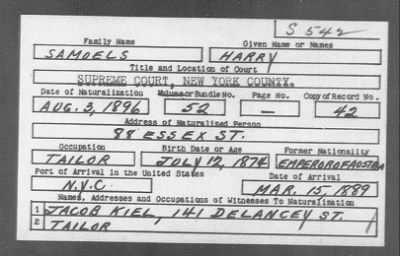 S 542
Family Name Given Name or Names
SAMOELS HARRY
Title and Location of Court
SUPREME COURT, NEW YORK COUNTY.
Date of Naturalization Volume or Bundle No. Page No. Copy of Record No.
AUG. 3, 1896 52 — 42
Address of Naturalized Person
88 ESSEX ST.
Occupation Birth Date or Age Former Nationality
TAILOR JULY 12, 1874 EMPEROROFAUSTRIA
Port of Arrival in the United States Date of Arrival
N.Y.C. MAR. 15, 1889
Names, Addresses and Occupations of Witnesses To Naturalization
1 JACOB KIEL, 141 DELANCEY ST.
2 TAILOR